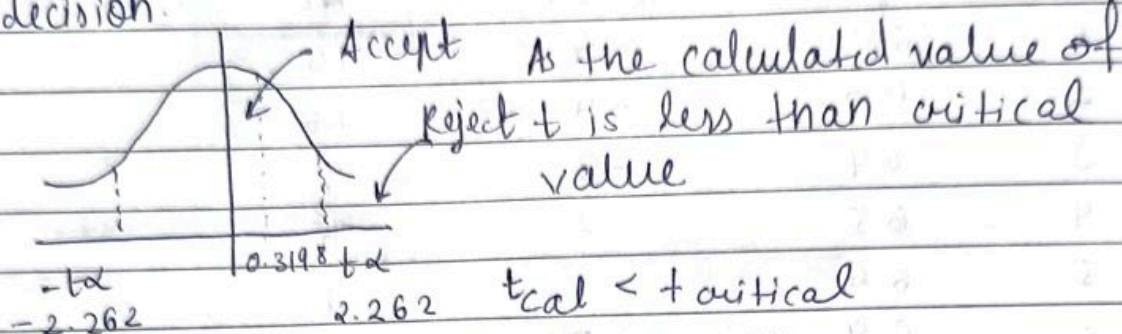 decision.
Accept As the calculated value of
Reject t is less than critical
value
0.3198 tα
-tα
tcal < t critical
-2.262 2.262